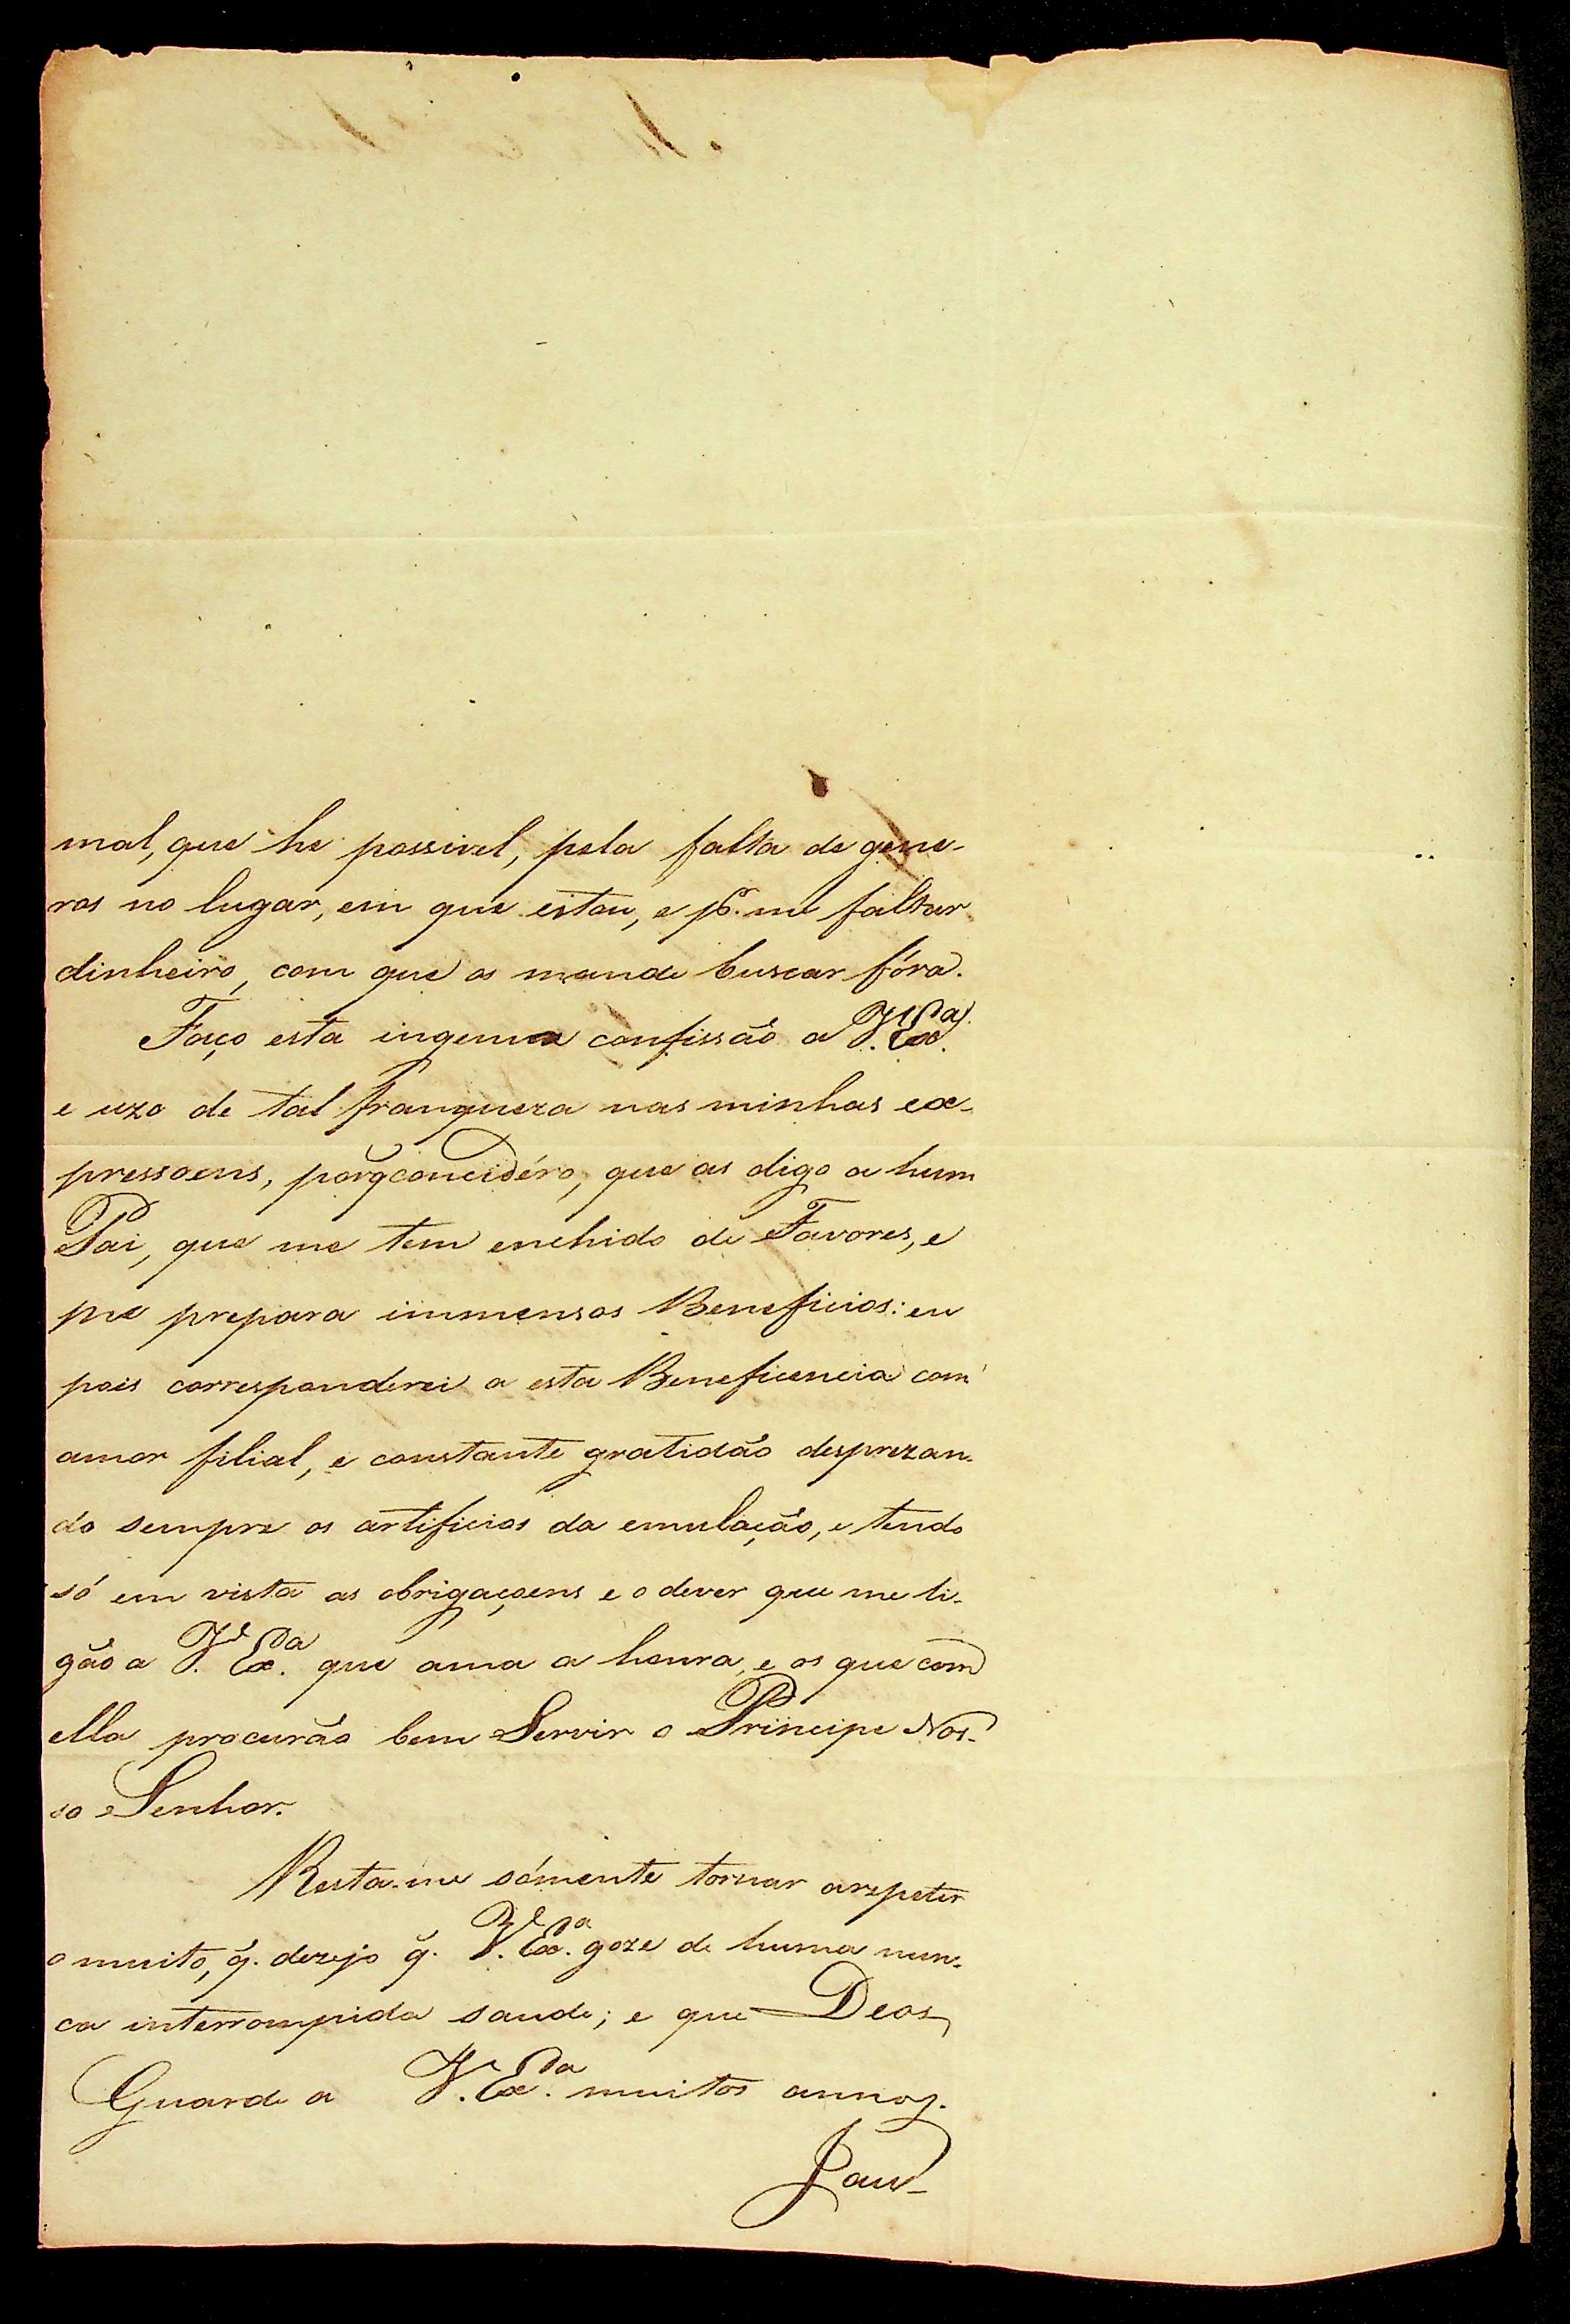 mal, que he possivel, pela falta de gene-
ros no lugar, em que estou, e pr. me faltar
dinheiro, com que os mande buscar fóra.
Faço esta ingenua confissão a V. Exa.
e uzo de tal franqueza nas minhas ex-
pressoens, porq̃ concidéro, que as digo a hum
Pai, que me tem enchido de Favores, e
me prepara immensos Beneficios: eu
pois corresponderei a esta Beneficencia com
amor filial, e constante gratidão desprezan-
do sempre os artificios da emulação, e tendo
só em vista as obrigaçoens e o dever que me li-
gão a V. Exa. que ama a honra, e os que com
ella procurão bem Servir o Principe Nos-
so Senhor.
Resta-me sómente tornar a repetir
o muito, q̃. dezejo q̃. V. Exa. goze de huma nun-
ca interrompida saude; e que Deos
Guarde a V. Exa. muitos annos.
Pau-